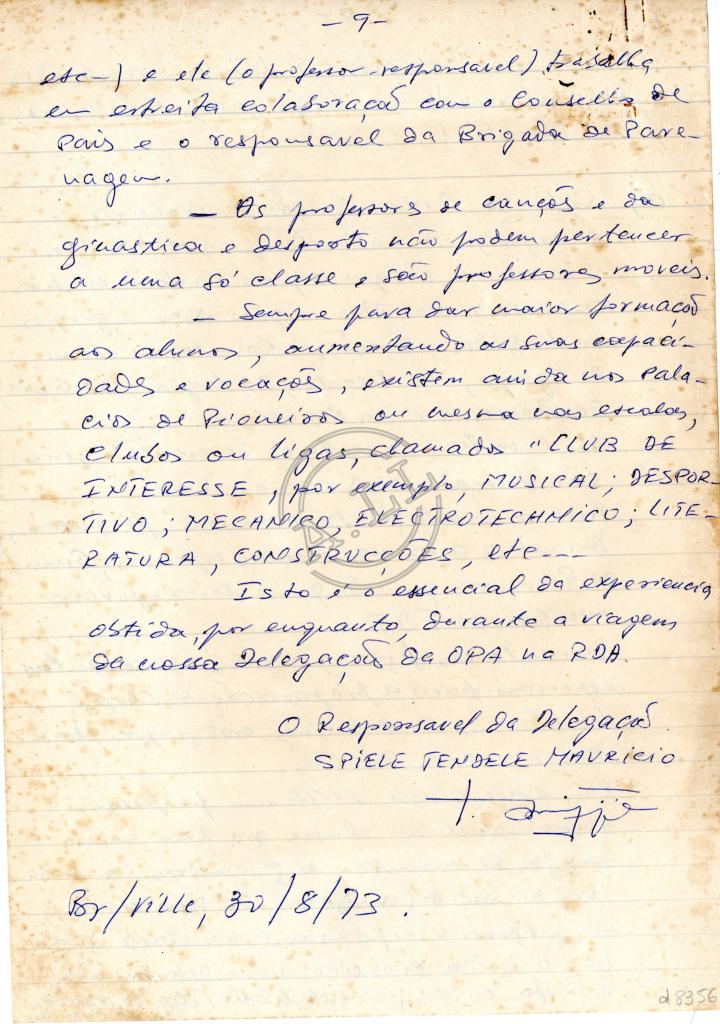 - 9 -
etc-) e ele (o professor-responsavel) trabalha
em estreita colaboração com o Conselho de
Pais e o responsavel da Brigada de Parenagem.
— Os professores de canções e da
ginastica e desporto não podem pertencer
a uma só classe e são professores moveis.
— Sempre para dar maior formação
aos alunos, aumentando as suas capaci-
dades e vocações, existem ainda nos Pala-
cios de Pioneiros ou mesmo nas escolas,
Clubos ou ligas, chamados "CLUB DE
INTERESSE, por exemplo, MUSICAL; DESPOR-
TIVO; MECANICO, ELECTROTECHNICO; LITE-
RATURA, CONSTRUCÇÕES, etc---
Isto é o essencial da experiencia
obtida, por enquanto, durante a viagem
da nossa Delegação da OPA na RDA.
O Responsavel da Delegação
SPIELE TENDELE MAURICIO
Br/ville, 30/8/73.
A.LL
d8356